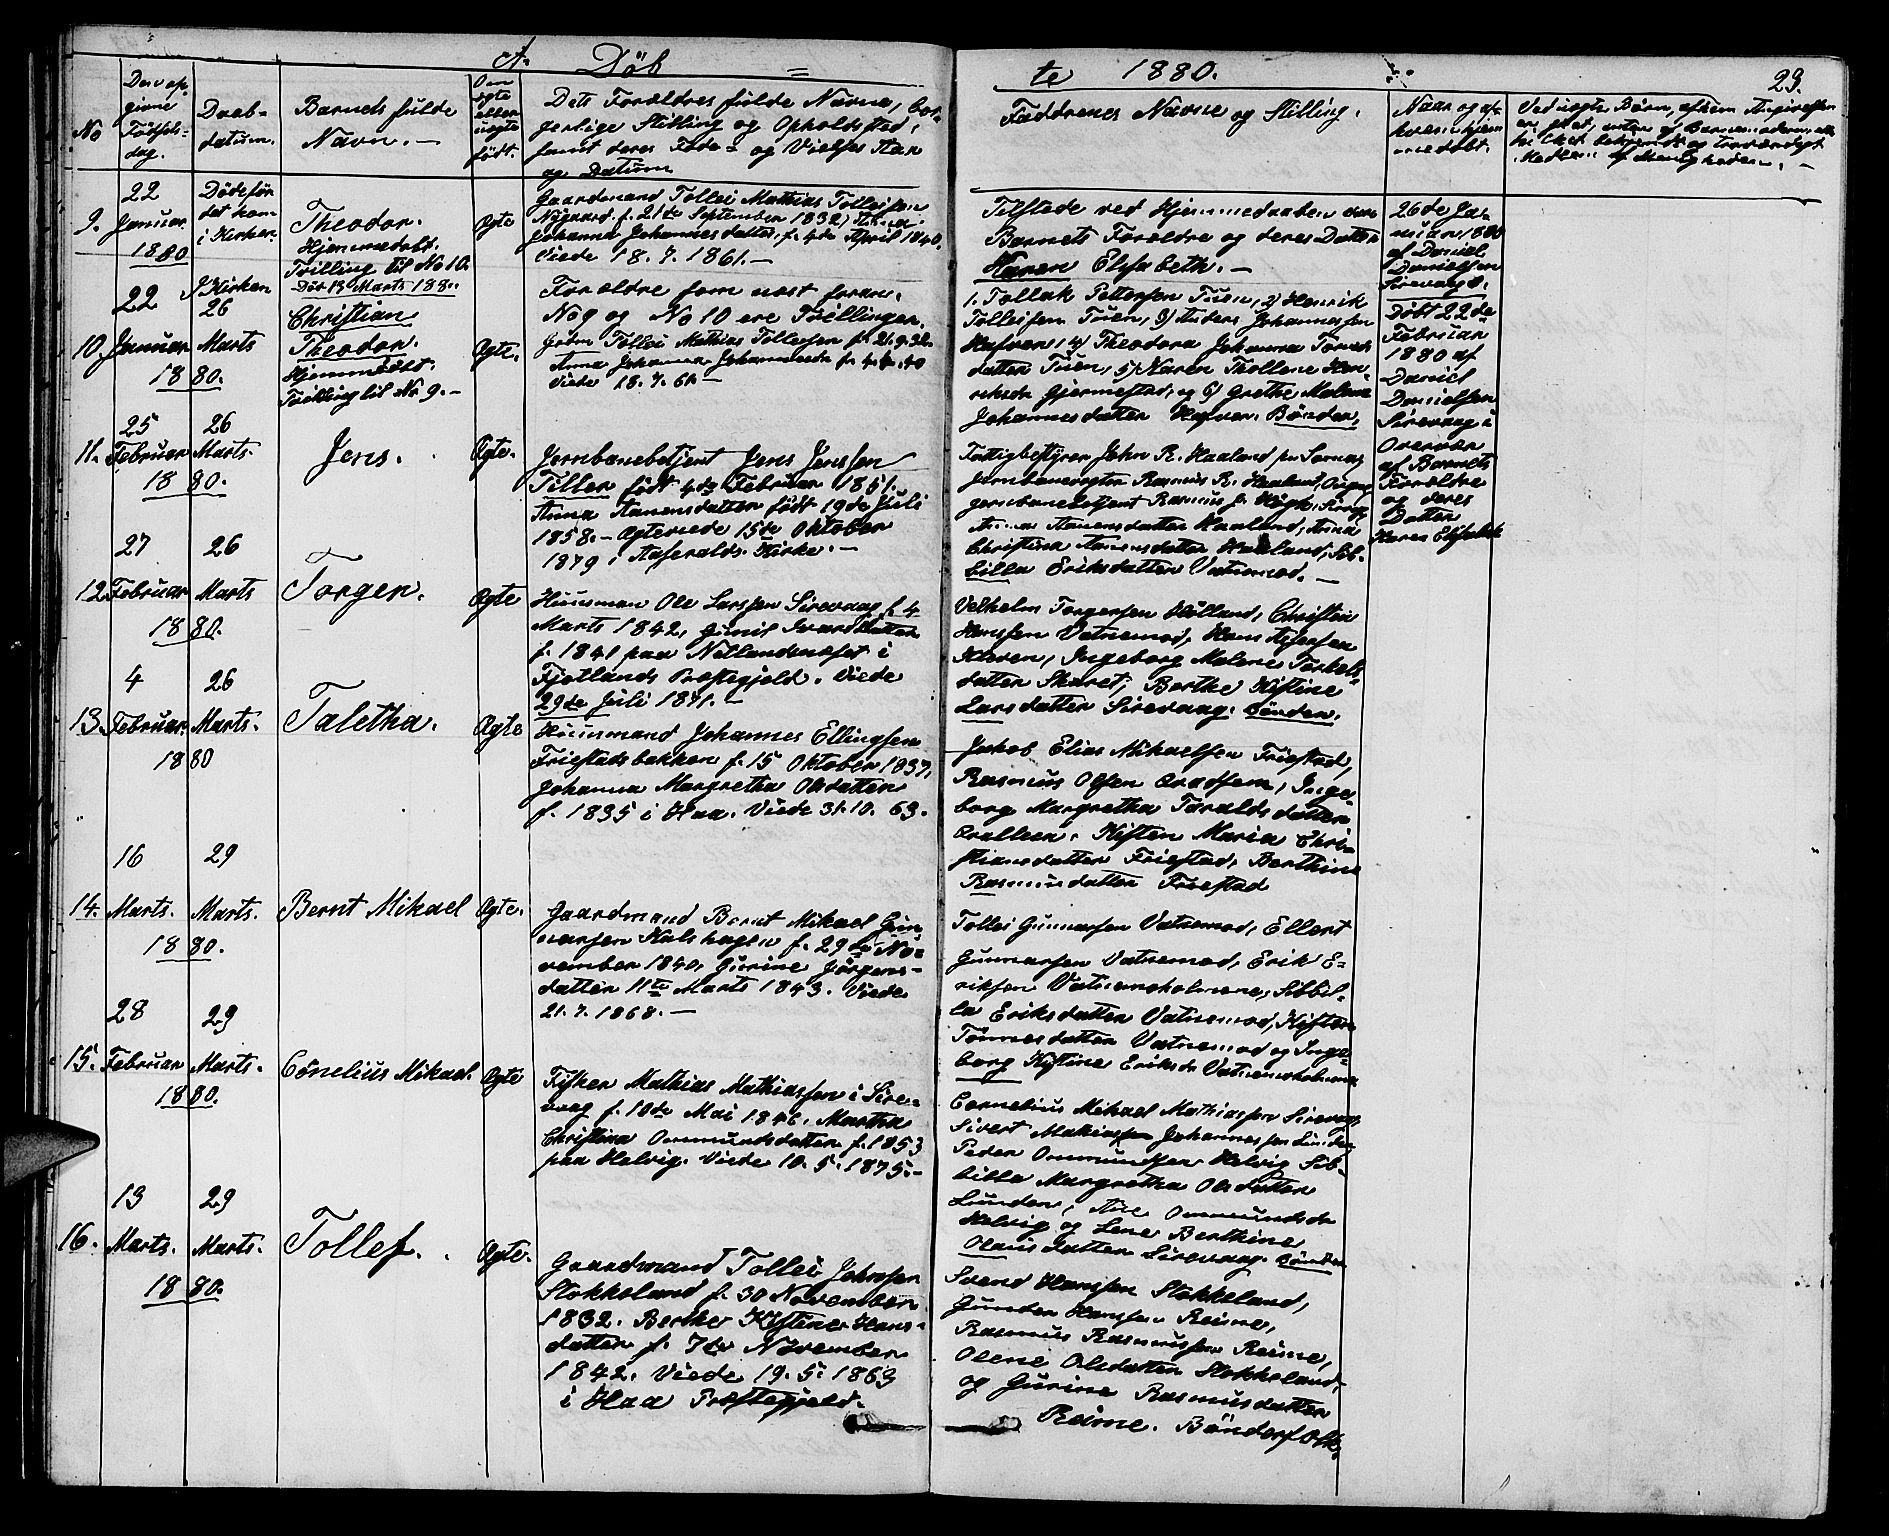 A. Döb = te 1880. 23.
No
Den opgivne Födsels-dag.
Daab-datum.
Barnets fulde Navn. —
Om ægte eller uægte födt.
Dets Forældres fulde Navne, bor-
gerlige Stilling og Opholdssted,
samt deres Föde- og Vielses Aar
og Datum
Faddrenes Navne og Stilling.
Naar og af hvem hjemmedöbt.
9.
22 Januar 1880
Döde för det kom i Kirken.
Theodor.
Hjemmedöbt.
Tvilling til No 10.
Död 13 Marts 1880.
Ægte
Gaardmand Tollei Mathias Tolleifsen
Nygaard f. 21de September 1832, Anna
Johanna Johannesdatter f. 4de April 1840.
Viede 18. 7. 1861. —
Tilstede ved Hjemmedaaben vare
Barnets Forældre og deres Datter
Karen Elisabeth. —
26de Ja-
nuar 1880
af Daniel
Danielsen
Sirevaag.
10.
22 Januar 1880.
I Kirken 26 Marts
Christian
Theodor.
Hjemmedöbt.
Tvilling til No 9. —
Ægte.
Forældre som næst foran.
No 9 og No 10 ere Tvillinger.
Gdm Tollei Mathias Tollefsen f. 21.9.32.
Anna Johanna Johannesdr f. 4.4.40
Viede 18. 7. 61. —
1. Tollak Pettersen Tuen, 2) Henrik
Tolleifsen Tuen, 3) Anders Johannessen
Hafven, 4) Theodora Johanna Tores
datter Tuen, 5) Karen Thollene Hen-
riksdr Gjermestad, og 6) Grethe Malene
Johannesdatter Hafven. Bönder.
Döbt 22de
Februar
1880 af
Daniel
Danielsen
Sirevaag i
Overvær
af Barnets
Forældre
og deres
Datter
Karen Elisabeth
11.
25 Februar 1880.
26 Marts.
Jens.
Ægte.
Jernbanebetjent Jens Jenssen
Tiller födt 4de Februar 1851.
Anna Aanensdatter födt 19de Juli
1858. — Ægteviede 15de Oktober
1879 i Aaseralds Kirke. —
Fattigbestyrer John R. Haaland
Jernbanevogter Rasmus R. Haaland,
Jernbanebetjent Rasmus J. Högh,
Anna Aanensdatter Haaland, Anna
Christina Aanensdatter Haaland, Sib-
billa Eriksdatter Vatnemod. —
12.
27 Februar 1880.
26 Marts
Torger.
Ægte
Huusmand Ole Larssen Sirevaag f. 4
Marts 1842, Gunil Ivarsdatter
f. 1841 paa Netlandsnæset i
Fjotlands Præstegjeld. Viede
29de Juli 1871. —
Velhelm Torgersen Hölland, Christin
Hanssen Vatnemod, Hans Asjersen
Kleven, Ingeborg Malene Torkels-
datter Skaret, Berthe Kistine
Larsdatter Sirevaag. Bönder.
13.
4 Februar. 1880
26 Marts.
Taletha.
Ægte
Huusmand Johannes Ellingsen
Friestadsbakken f. 15 Oktober 1837,
Johanna Margretha Olsdatter
f. 1835 i Haa. Viede 31. 10. 63.
Jakob Elias Mikaelsen Friestad,
Rasmus Olsen Qvadsem, Inge-
borg Margretha Taraldsdatter
Qvalleen. Kisten Maria Chri-
stiansdatter Friestad, Berthine
Rasmusdatter Friestad
14.
16 Marts. 1880.
29 Marts.
Bernt Mikael
Ægte.
Gaardmand Bernt Mikael Gun
narsen Kalshagen f. 29de No-
vember 1840, Gurine Jörgens-
datter 11te Marts 1843. Viede
21. 7. 1868. —
Tollei Gunnarsen Vatnemod, Ellert
Gunnarsen Vatnemod, Erik E-
riksen Vatnemoholmene, Sibbil-
la Eriksdatter Vatnemod, Kisten
Tönnesdatter Vatnemod og Inge-
borg Kistine Eriksdr Vatnemoholmene
15.
28 Februar 1880.
29 Marts.
Cornelius Mikael.
Ægte
Fisker Mathias Mathiassen i Sire-
vaag f. 10de Mai 1846. Martha
Christina Ommundsdatter f. 1853
paa Helvig. Viede 10. 5. 1875. —
Cornelius Mikael Mathiassen Sirevaag,
Sivert Mathias Johannessen Lunden
Peder Ommundsen Helvig Sib-
billa Margretha Olsdatter
Lunden, Ane Ommundsdr
Helvig og Lene Berthine
Olausdatter Sirevaag. Bönder
16.
13 Marts. 1880.
29 Marts.
Tollef.
Ægte.
Gaardmand Tollei Johnsen
Stokkeland f. 30 November
1832. Berthe Kistine Hans-
datter f. 7de November
1842. Viede 19. 5. 1863
i Haa Præstegjeld.
Svend Hanssen Stokkeland,
Gunder Hanssen Reime,
Rasmus Rasmussen Reime,
Olene Olsdatter Stokkeland,
og Gurine Rasmusdatter
Reime. Bönderfolk.